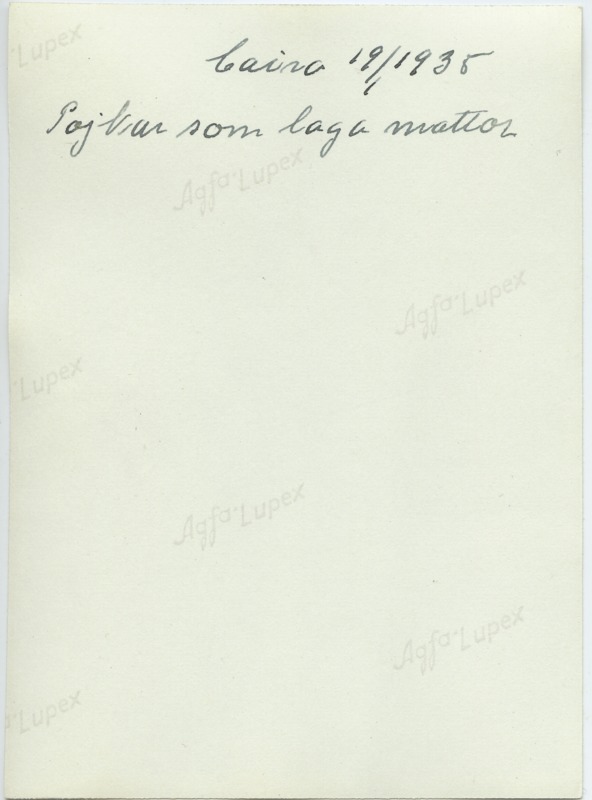 Cairo 19/1 1935
Pojkar som laga mattor
Lupex
Agfa-Lupex
Agfa-Lupex
Lupex
Agfa-Lupex
Agfa-Lupex
a-Lupex